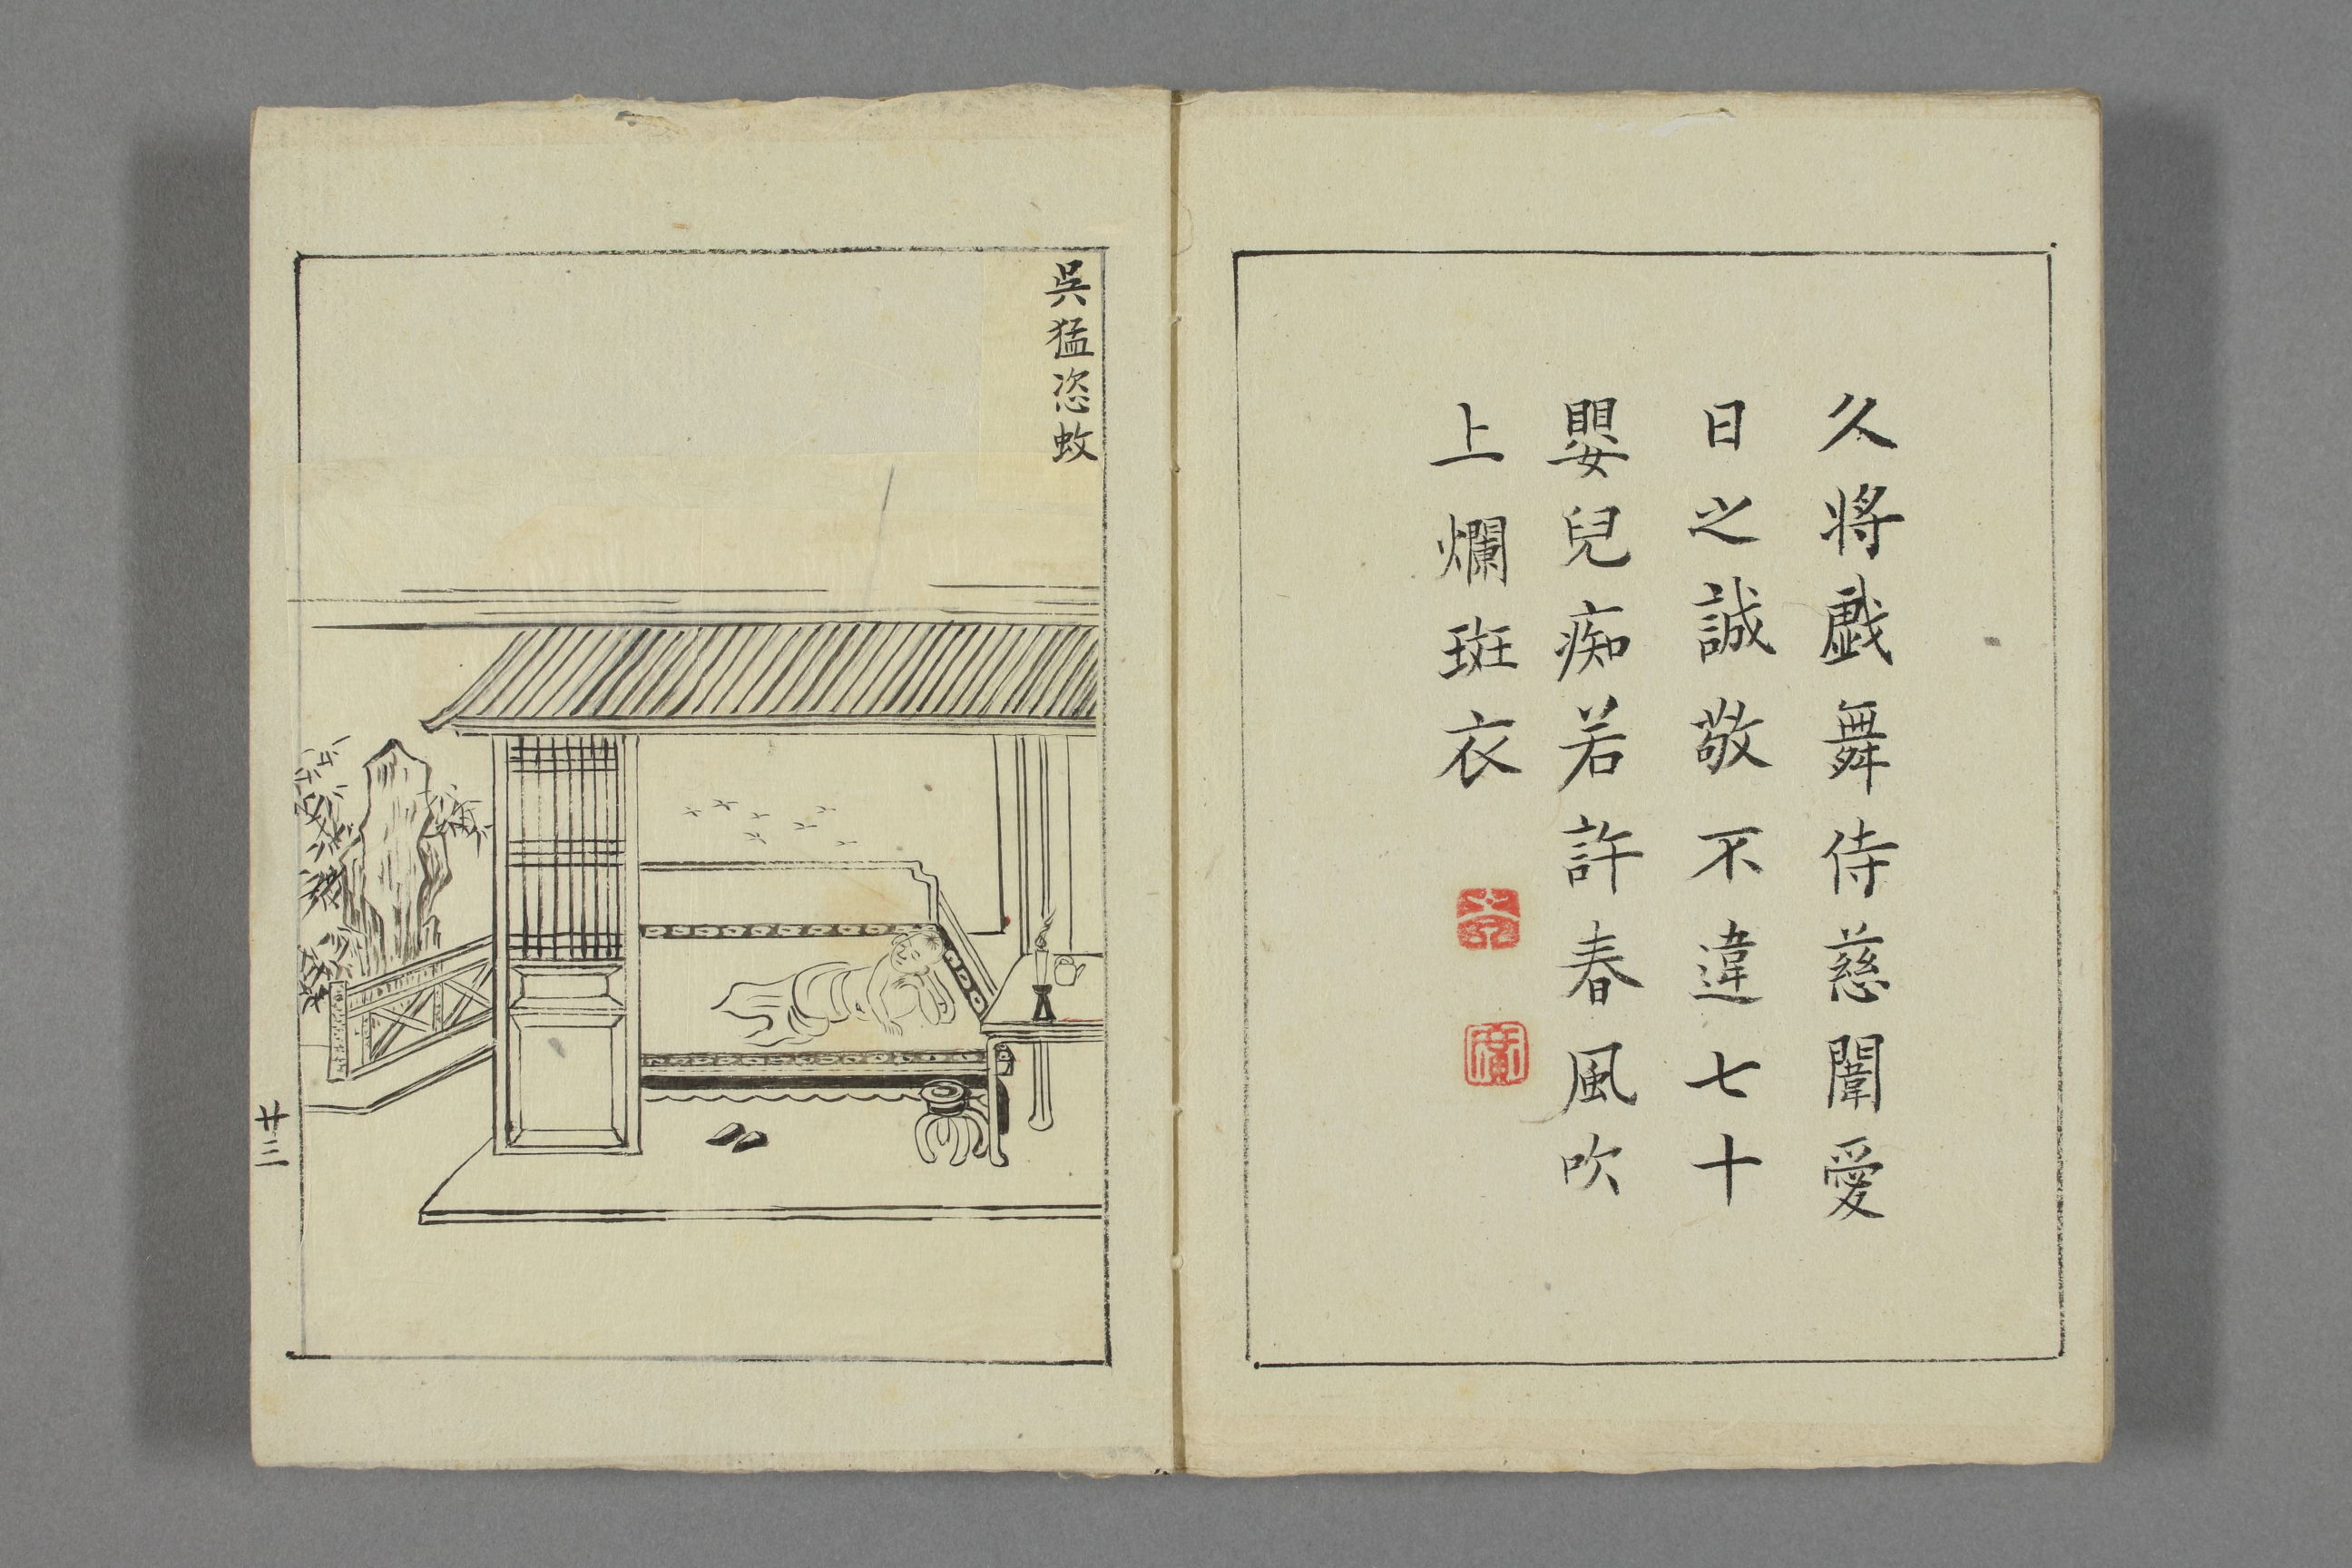 久將戯舞侍慈闈愛
日之誠敬不違七十
嬰兒痴若許春風吹
上爛斑衣
吳猛恣蚊
廿三